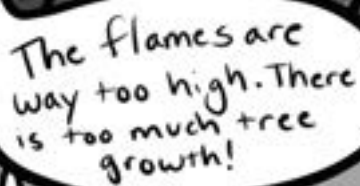 The flames are
way too high. There
is too much tree
growth!